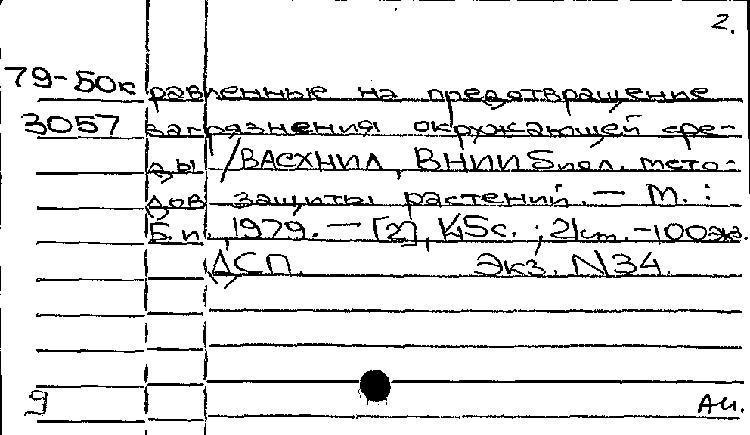 2.
79-50к равленные на предотвращение
3057 загрязнения окружающей сре-
ды /ВАСХНИЛ, ВНИИ биол. мето-
дов защиты растений. — М. :
Б.и., 1979. — [2], 45с. ; 21см. -100экз.
ДСП. Экз. N34.
9 АИ.